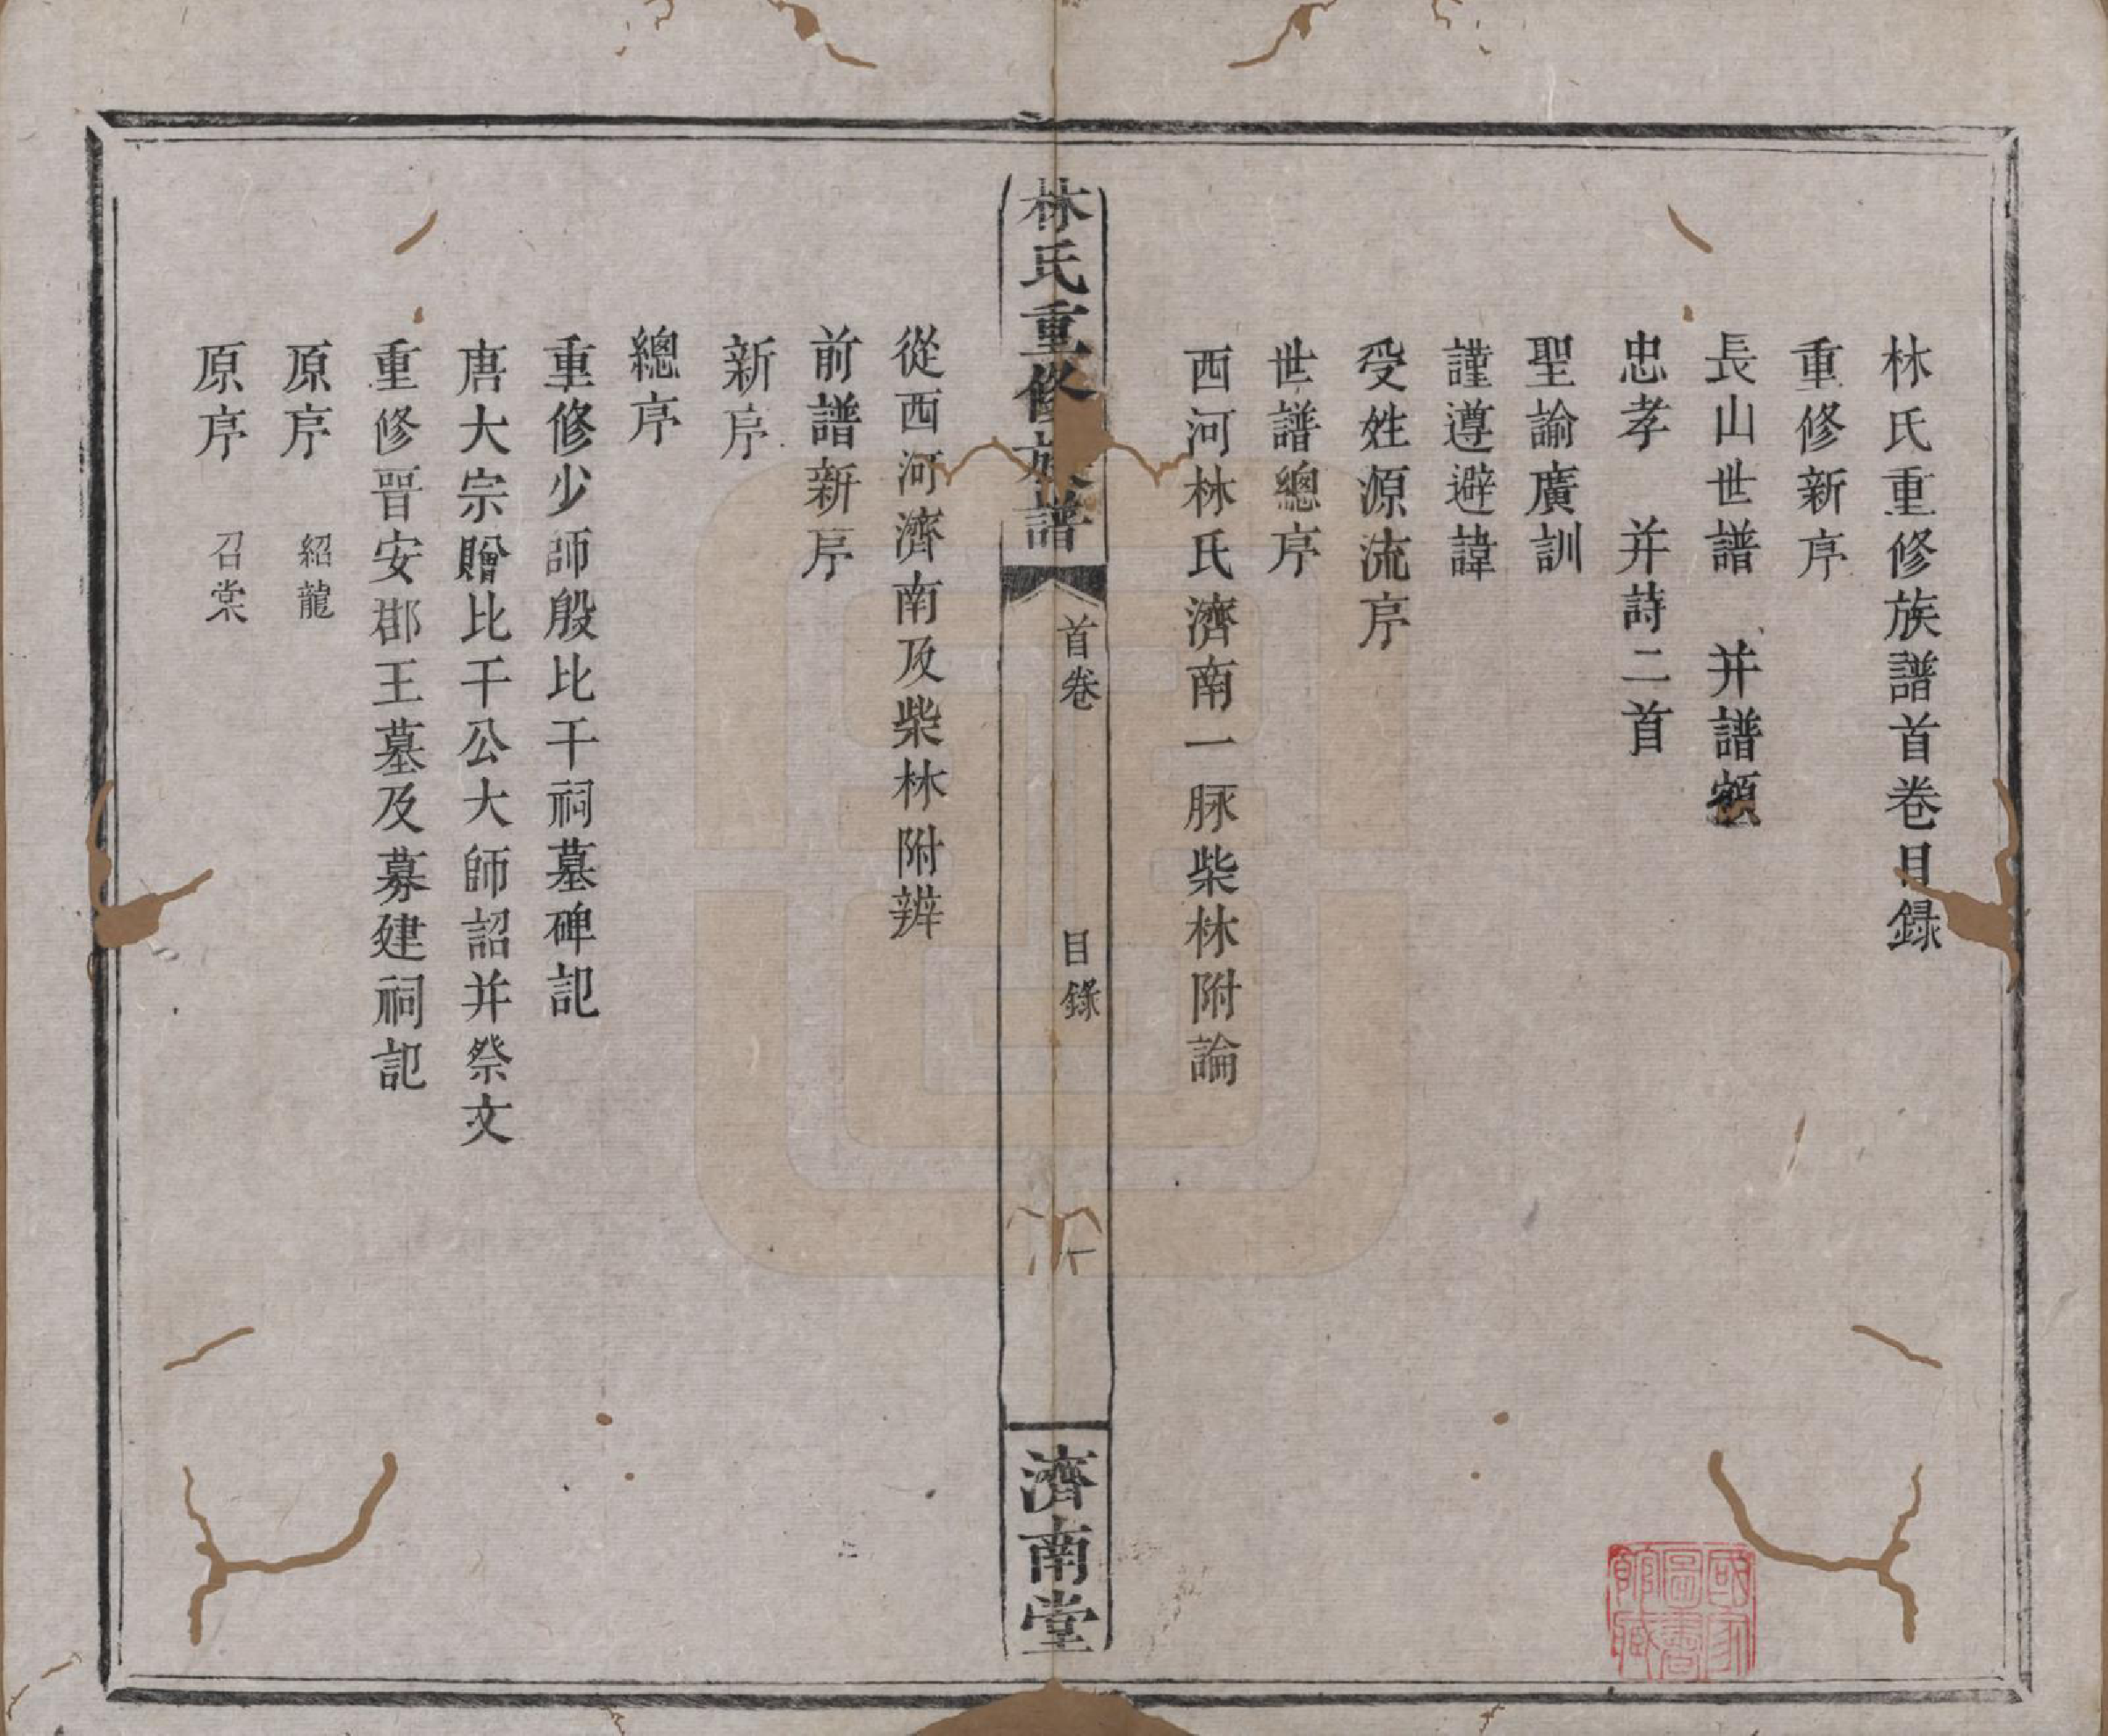 林氏重修族譜首卷目録
重修新序
長山世譜　并譜額
忠孝　并詩二首
聖諭廣訓
謹遵避諱
受姓源流序
世譜總序
西河林氏濟南一脉柴林附論
林氏重修族譜
首卷
目錄
一
濟南堂
從西河濟南及柴林附辨
前譜新序
新序
總序
重修少師殷比干祠墓碑記
唐大宗贈比干公大師詔并祭文
重修晉安郡王墓及募建祠記
原序　紹龍
原序　召棠
國家圖書館藏